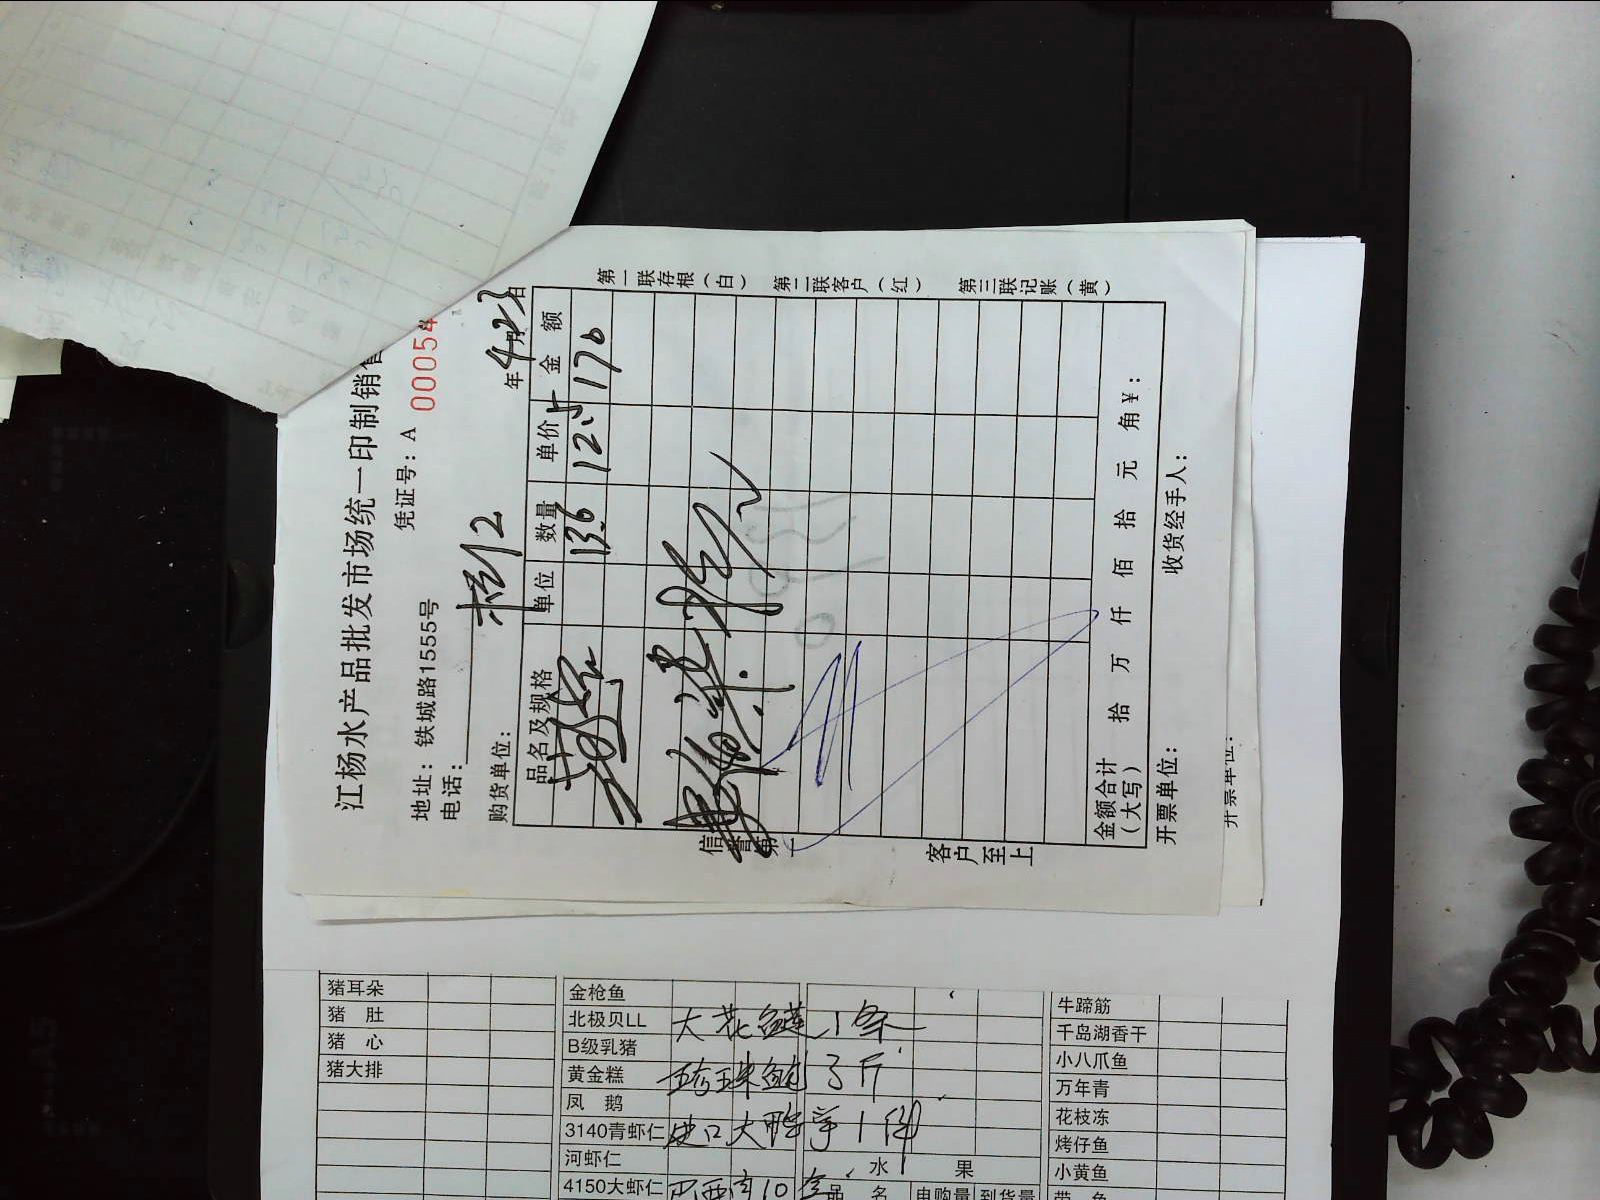 江杨水产品批发市场统一印制销售
凭证号：A 00054
地址：铁城路1555号
电话：
购货单位：
年4月23日
品名及规格 单位 数量 单价 金额
13.6 12.5 170
第一联存根（白） 第二联客户（红） 第三联记账（黄）
信誉第一
客户至上
金额合计（大写） 拾 万 仟 佰 拾 元 角 ¥：
开票单位： 收货经手人：
开票单位：
猪耳朵 金枪鱼 牛蹄筋
猪肚 北极贝LL 大花鲢1条 千岛湖香干
猪心 B级乳猪 小八爪鱼
猪大排 黄金糕 3斤 万年青
凤鹅 花枝冻
3140青虾仁 进口大鸭掌1件 烤仔鱼
河虾仁 水果 小黄鱼
4150大虾仁 10 品名 申购量 到货量 带鱼